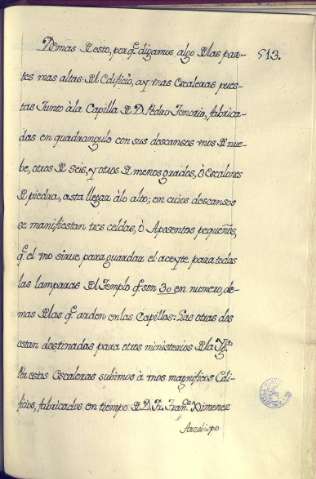 513.
Demas de esto, porq̃ digamos algo de las par-
tes mas altas del Edificio, ay tras Escaleras pues-
tas Junto à la Capilla de D. Pedro Tenorio, fabrica-
das en quadrangulo con sus descansos unos de nue-
be, otros de seis, y otros de menos grados, ò Escalones
de piedra, asta llegar àlo alto; en cuios descansos
se manifiestan tres celdas, ò Aposentos pequeños,
q̃ el uno sirve para guardar el aceyte para todas
las lamparas del Templo q̃ son 30 en numero, de-
mas de las q̃ arden en las Capillas: Las otras dos
estan destinadas para otros ministerios de la Ygª.
Por estas Escaleras subimos à unos magnificos Edi-
ficios, fabricados en tiempo de D. Fr. Franco. Ximenez
Arzobispo